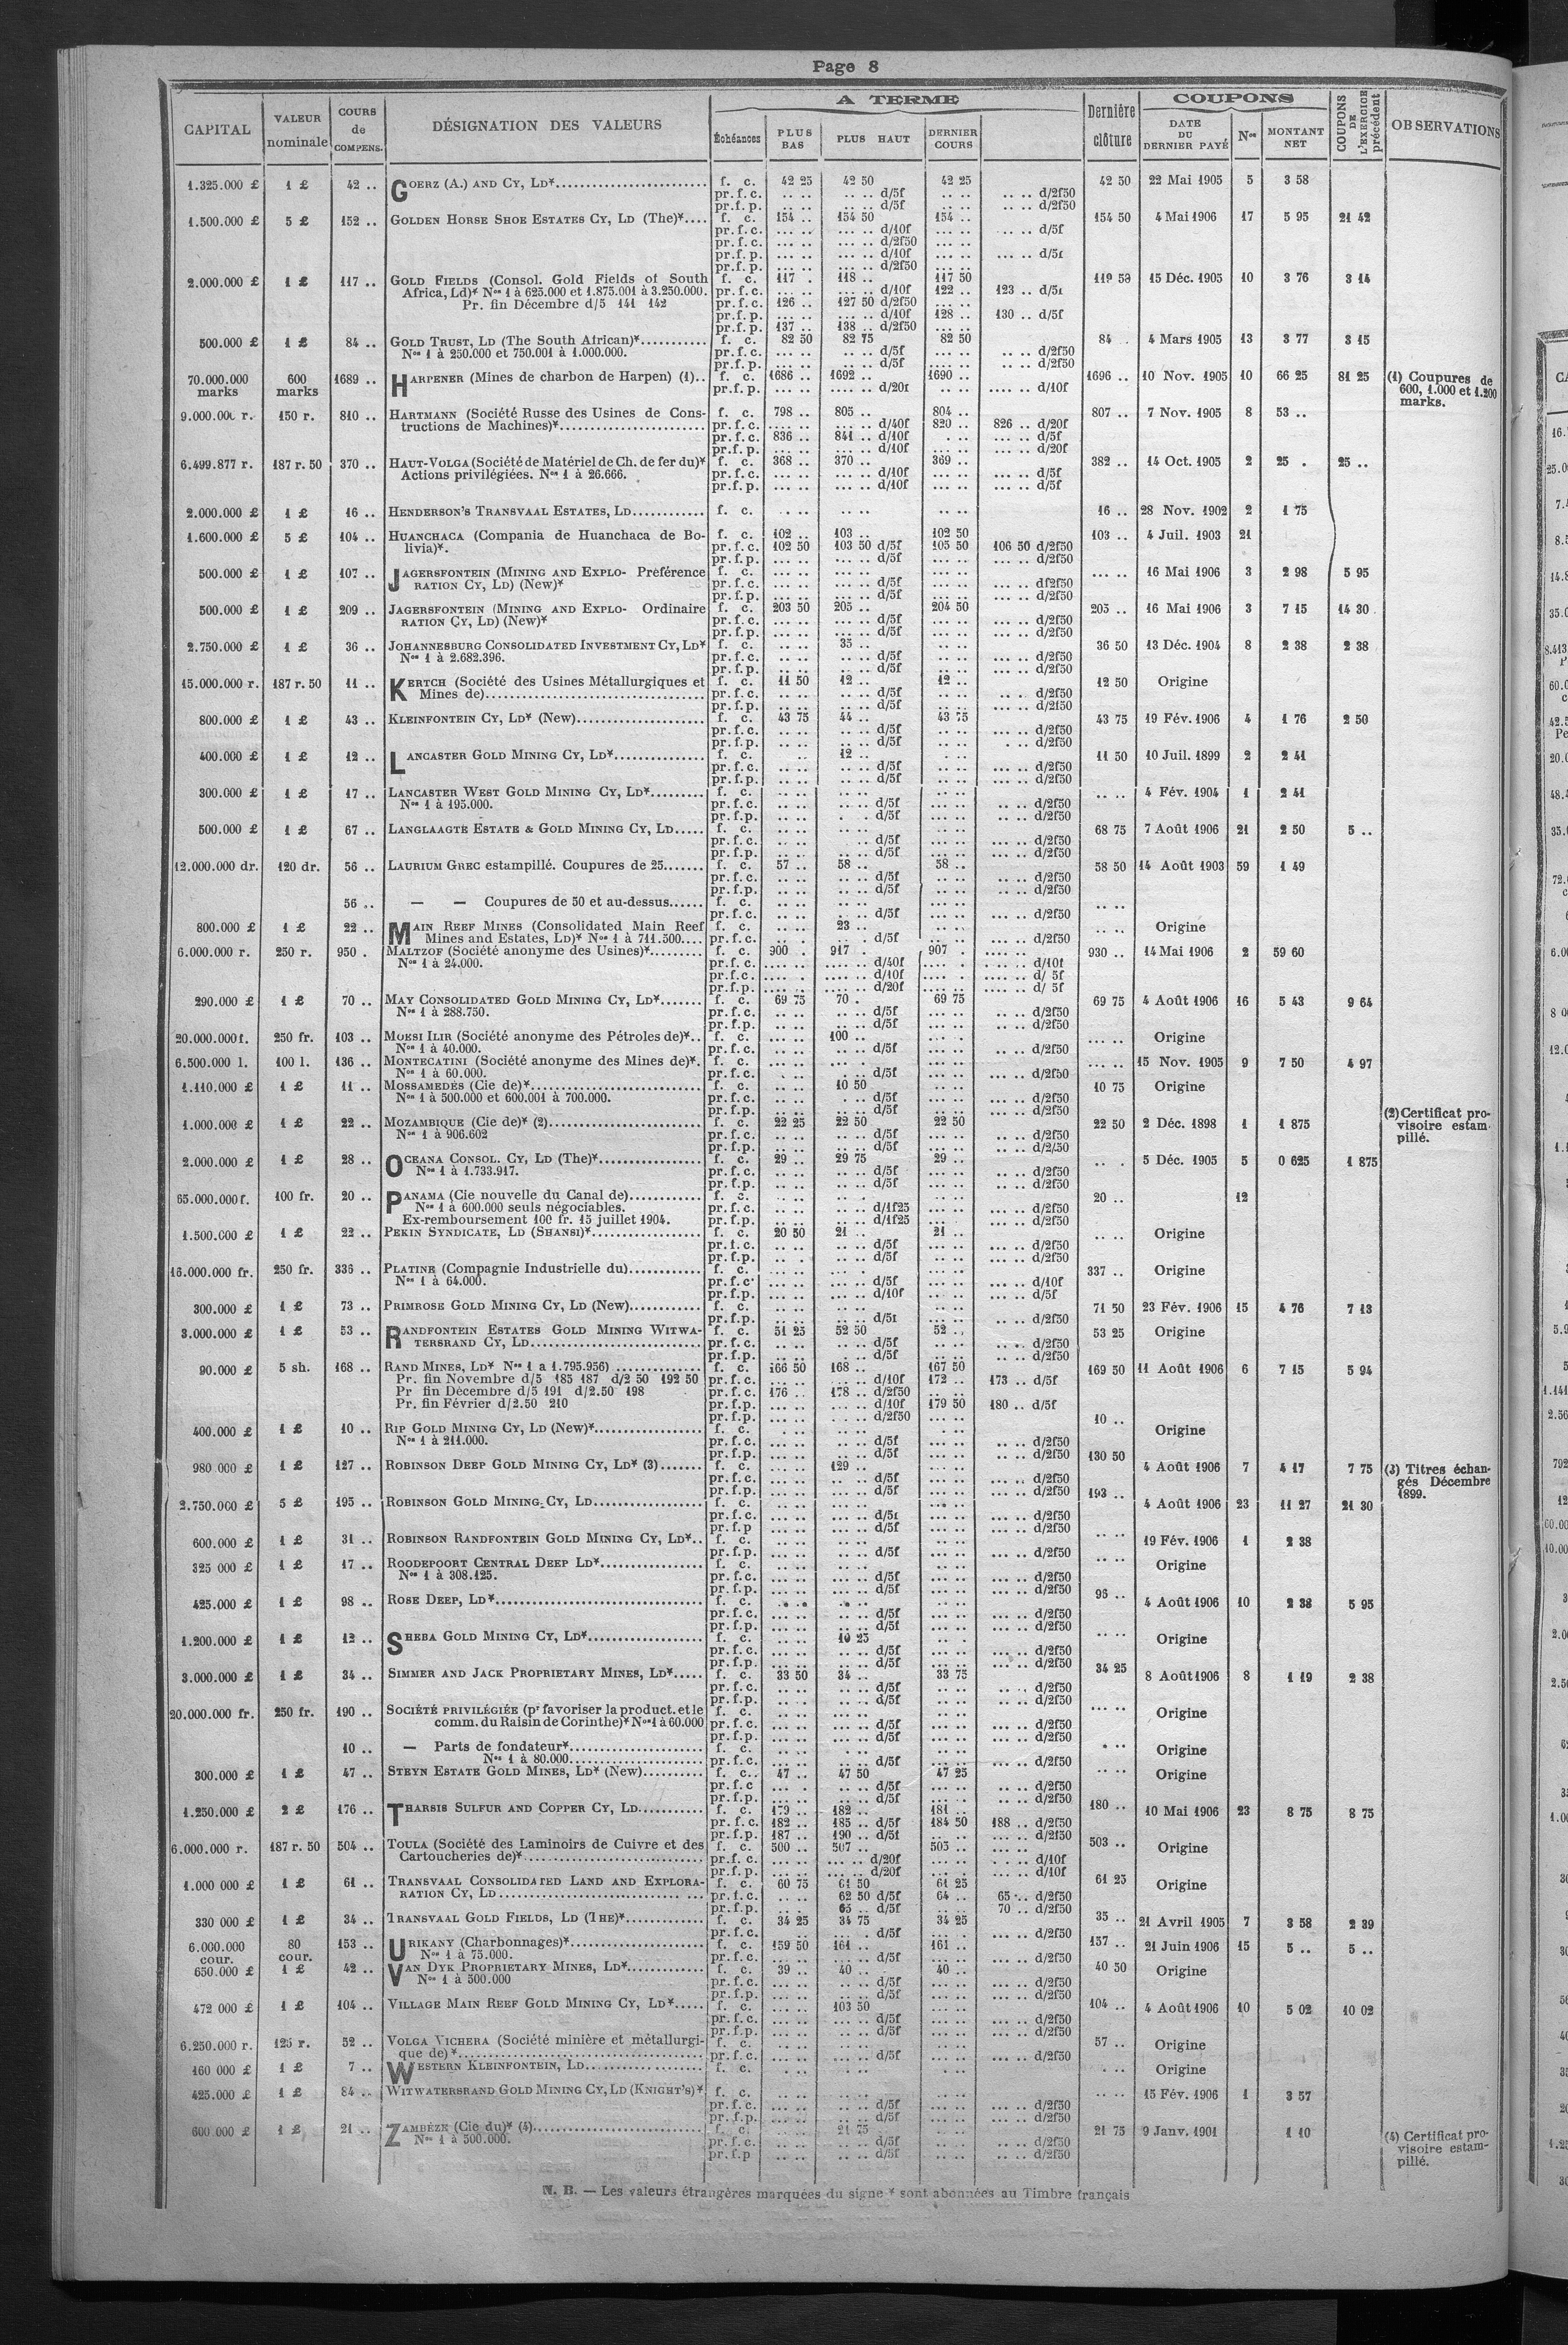 Page 8
CAPITAL | VALEUR nominale | COURS de COMPENS. | DÉSIGNATION DES VALEURS | A TERME | Dernière clôture | COUPONS | COUPONS DE L'EXERCICE précédent | OBSERVATIONS
Échéances | PLUS BAS | PLUS HAUT | DERNIER COURS | DATE DU DERNIER PAYÉ | Nos | MONTANT NET
1.325.000 £ 1 £ 42 .. GOERZ (A.) AND CY, LD*........ f. c. 42 25 42 50 42 25 42 50 22 Mai 1905 5 3 58
pr. f. c. .. .. .. .. d/5f .. .. .. .. d/2f50
pr. f. p. .. .. .. .. d/5f .. .. .. .. d/2f50
1.500.000 £ 5 £ 152 .. GOLDEN HORSE SHOE ESTATES CY, LD (The)*.... f. c. 154 .. 154 50 154 .. 154 50 4 Mai 1906 17 5 95 21 42
pr. f. c. ... .. ... .. d/10f ... .. .. .. d/5f
pr. f. c. ... .. ... .. d/2f50 ... ..
pr. f. p. ... .. ... .. d/10f ... .. ... .. d/5f
pr. f. p. ... .. ... .. d/2f50 ... ..
2.000.000 £ 1 £ 117 .. GOLD FIELDS (Consol. Gold Fields of South f. c. 117 . 118 .. 117 50 119 50 15 Déc. 1905 10 3 76 3 14
Africa, Ld)* Nos 1 à 625.000 et 1.875.001 à 3.250.000. pr. f. c. ... .. ... .. d/10f 122 .. 123 .. d/5f
Pr. fin Décembre d/5 141 142 pr. f. c. 126 .. 127 50 d/2f50 ... ..
pr. f. p. ... .. ... .. d/10f 128 .. 130 .. d/5f
pr. f. p. 137 .. 138 .. d/2f50 ... ..
500.000 £ 1 £ 84 .. GOLD TRUST, LD (The South African)*........ f. c. 82 50 82 75 82 50 84 . 4 Mars 1905 13 3 77 3 15
Nos 1 à 250.000 et 750.001 à 1.000.000. pr. f. c. ... .. .. .. d/5f ... .. .. .. d/2f50
pr. f. p. ... .. .. .. d/5f ... .. .. .. d/2f50
70.000.000 marks 600 marks 1689 .. HARPENER (Mines de charbon de Harpen) (1).. f. c. 1686 .. 1692 .. 1690 .. 1696 .. 10 Nov. 1905 10 66 25 81 25 (1) Coupures de
pr. f. p. .... .. .... .. d/20f .... .. .... .. d/10f 600, 1.000 et 1.200
marks.
9.000.000 r. 150 r. 810 .. HARTMANN (Société Russe des Usines de Cons- f. c. 798 .. 805 .. 804 .. 807 .. 7 Nov. 1905 8 53 ..
tructions de Machines)*........ pr. f. c. ... .. ... .. d/40f 820 .. 826 .. d/20f
pr. f. c. 836 .. 841 .. d/10f . .. ... .. d/5f
pr. f. p. ... .. ... .. d/10f ... .. ... .. d/20f
6.499.877 r. 187 r. 50 370 .. HAUT-VOLGA (Société de Matériel de Ch. de fer du)* f. c. 368 .. 370 .. 369 .. 382 .. 14 Oct. 1905 2 25 . 25 ..
Actions privilégiées. Nos 1 à 26.666. pr. f. c. ... .. ... .. d/10f ... .. ... .. d/5f
pr. f. p. ... .. ... .. d/10f ... .. ... .. d/5f
2.000.000 £ 1 £ 16 .. HENDERSON'S TRANSVAAL ESTATES, LD........ f. c. . .. .. .. .. .. 16 .. 28 Nov. 1902 2 1 75
1.600.000 £ 5 £ 104 .. HUANCHACA (Compania de Huanchaca de Bo- f. c. 102 .. 103 .. 102 50 103 .. 4 Juil. 1903 21
livia)*. pr. f. c. 102 50 103 50 d/5f 105 50 106 50 d/2f50
pr. f. p. ... .. ... .. d/5f ... .. ... .. d/2f50
500.000 £ 1 £ 107 .. JAGERSFONTEIN (MINING AND EXPLO- Préférence f. c. ... .. ... .. ... .. ... .. 16 Mai 1906 3 2 98 5 95
RATION CY, LD) (New)* pr. f. c. ... .. ... .. d/5f ... .. ... .. df2f50
pr. f. p. ... .. ... .. d/5f ... .. ... .. d/2f50
500.000 £ 1 £ 209 .. JAGERSFONTEIN (MINING AND EXPLO- Ordinaire f. c. 203 50 205 .. 204 50 205 .. 16 Mai 1906 3 7 15 14 30
RATION CY, LD) (New)* pr. f. c. ... .. ... .. d/5f ... .. ... .. d/2f50
pr. f. p. ... .. ... .. d/5f ... .. ... .. d/2f50
2.750.000 £ 1 £ 36 .. JOHANNESBURG CONSOLIDATED INVESTMENT CY, LD* f. c. .. .. 35 .. .. .. 36 50 13 Déc. 1904 8 2 38 2 38
Nos 1 à 2.682.396. pr. f. c. .. .. .. .. d/5f .. .. ... .. d/2f50
pr. f. p. .. .. .. .. d/5f .. .. ... .. d/2f50
15.000.000 r. 187 r. 50 11 .. KERTCH (Société des Usines Métallurgiques et f. c. 11 50 12 .. 12 .. 12 50 Origine
Mines de)........ pr. f. c. .. .. .. .. d/5f .. .. .. .. d/2f50
pr. f. p. .. .. .. .. d/5f .. .. .. .. d/2f50
800.000 £ 1 £ 43 .. KLEINFONTEIN CY, LD* (New)........ f. c. 43 75 44 .. 43 75 43 75 19 Fév. 1906 4 1 76 2 50
pr. f. c. .. .. .. .. d/5f .. .. ... .. d/2f50
pr. f. p. .. .. .. .. d/5f .. .. . .. d/2f50
400.000 £ 1 £ 12 .. LANCASTER GOLD MINING CY, LD*........ f. c. .. 12 .. . .. 11 50 10 Juil. 1899 2 2 41
pr. f. c. .. .. .. .. d/5f .. .. ... .. d/2f50
pr. f. p. .. .. .. .. d/5f .. .. ... .. d/2f50
300.000 £ 1 £ 17 .. LANCASTER WEST GOLD MINING CY, LD*........ f. c. .. .. .. .. ... .. .. .. 4 Fév. 1904 1 2 41
Nos 1 à 195.000. pr. f. c. .. .. ... .. d/5f ... .. .. .. d/2f50
pr. f. p. .. .. . . d/5f ... .. .. .. d/2f50
500.000 £ 1 £ 67 .. LANGLAAGTE ESTATE & GOLD MINING CY, LD..... f. c. .. .. .. .. ... .. 68 75 7 Août 1906 21 2 50 5 ..
pr. f. c. .. .. .. .. d/5f ... .. ... .. d/2f50
pr. f. p. .. .. .. .. d/5f ... .. ... .. d/2f50
12.000.000 dr. 120 dr. 56 .. LAURIUM GREC estampillé. Coupures de 25....... f. c. 57 .. 58 .. 58 .. 58 50 14 Août 1903 59 1 49
pr. f. c. .. .. .. .. d/5f .. .. ... .. d/2f50
pr. f. p. .. .. .. .. d/5f .. .. ... .. d/2f50
56 .. — — Coupures de 50 et au-dessus...... f. c. .. .. .. .. .. .. .. ..
pr. f. c. .. .. . .. d/5f .. .. ... .. d/2f50
800.000 £ 1 £ 22 .. MAIN REEF MINES (Consolidated Main Reef f. c. .. .. 23 .. .. .. .. .. Origine
Mines and Estates, LD)* Nos 1 à 711.500.... pr. f. c. .. . .. . d/5f .. .. ... .. d/2f50
6.000.000 r. 250 r. 950 . MALTZOF (Société anonyme des Usines)*........ f. c. 900 . 917 . 907 . .... .. 930 .. 14 Mai 1906 2 59 60
Nos 1 à 24.000. pr. f. c. .... .. .... .. d/40f .... . .... .. d/10f
pr. f. c. .... . .... .. d/10f .... . .... .. d/ 5f
pr. f. p. .... .. .... .. d/20f .... .. .... .. d/ 5f
290.000 £ 1 £ 70 .. MAY CONSOLIDATED GOLD MINING CY, LD*....... f. c. 69 75 70 . 69 75 69 75 4 Août 1906 16 5 43 9 64
Nos 1 à 288.750. pr. f. c. .. .. .. .. d/5f .. .. ... .. d/2f50
pr. f. p. .. .. .. .. d/5f .. .. ... .. d/2f50
20.000.000 f. 250 fr. 103 .. MOESI ILIR (Société anonyme des Pétroles de)*.. f. c. ... .. 100 .. ... .. ... .. Origine
Nos 1 à 40.000. pr. f. c. ... .. ... .. d/5f ... .. .. .. d/2f50
6.500.000 l. 100 l. 136 .. MONTECATINI (Société anonyme des Mines de)*. f. c. ... .. ... . ... .. ... .. 15 Nov. 1905 9 7 50 4 97
Nos 1 à 60.000. pr. f. c. ... .. ... .. d/5f ... .. ... .. d/2f50
1.110.000 £ 1 £ 11 .. MOSSAMEDÈS (Cie de)*........ f. c. .. .. 10 50 .. .. 10 75 Origine
Nos 1 à 500.000 et 600.001 à 700.000. pr. f. c. .. .. . .. d/5f .. .. ... .. d/2f50
pr. f. p. .. .. .. .. d/5f .. .. ... .. d/2f50
1.000.000 £ 1 £ 22 .. MOZAMBIQUE (Cie de)* (2)........ f. c. 22 25 22 50 22 50 22 50 2 Déc. 1898 1 1 875 (2) Certificat pro-
Nos 1 à 906.602 pr. f. c. .. .. .. .. d/5f .. .. ... .. d/2f50 visoire estam-
pr. f. p. .. .. .. .. d/5f .. .. ... .. d/2f50 pillé.
2.000.000 £ 1 £ 28 .. OCEANA CONSOL. CY, LD (The)*........ f. c. 29 .. 29 75 29 .. .. . 5 Déc. 1905 5 0 625 1 875
Nos 1 à 1.733.917. pr. f. c. .. .. .. .. d/5f .. .. ... .. d/2f50
pr. f. p. .. .. .. .. d/5f .. .. ... .. d/2f50
65.000.000 f. 100 fr. 20 .. PANAMA (Cie nouvelle du Canal de)........ f. c. .. .. .. . .. .. 20 .. 12
Nos 1 à 600.000 seuls négociables. pr. f. c. .. .. .. .. d/1f25 .. .. ... .. d/2f50
Ex-remboursement 100 fr. 15 juillet 1904. pr. f. p. .. .. .. .. d/1f25 .. .. ... .. d/2f50
1.500.000 £ 1 £ 22 .. PEKIN SYNDICATE, LD (SHANSI)*........ f. c. 20 50 21 .. 21 .. .. .. Origine
pr. f. c. .. .. .. .. d/5f .. .. ... .. d/2f50
pr. f. p. .. . .. .. d/5f .. .. ... .. d/2f50
16.000.000 fr. 250 fr. 336 .. PLATINE (Compagnie Industrielle du)........ f. c. ... .. ... . ... .. 337 .. Origine
Nos 1 à 64.000. pr. f. c. ... .. ... .. d/5f ... .. ... .. d/10f
pr. f. p. ... .. ... .. d/10f ... .. ... .. d/5f
300.000 £ 1 £ 73 .. PRIMROSE GOLD MINING CY, LD (New)........ f. c. .. .. .. .. .. .. 71 50 23 Fév. 1906 15 4 76 7 13
pr. f. p. .. .. .. .. d/5f .. .. ... .. d/2f50
3.000.000 £ 1 £ 53 .. RANDFONTEIN ESTATES GOLD MINING WITWA- f. c. 51 25 52 50 52 .. 53 25 Origine
TERSRAND CY, LD........ pr. f. c. .. .. .. .. d/5f .. .. .. .. d/2f50
pr. f. p. .. .. .. .. d/5f .. .. ... .. d/2f50
90.000 £ 5 sh. 168 .. RAND MINES, LD* Nos 1 a 1.795.956) ........ f. c. 166 50 168 .. 167 50 169 50 11 Août 1906 6 7 15 5 94
Pr. fin Novembre d/5 185 187 d/2 50 192 50 pr. f. c. ... .. ... .. d/10f 172 .. 173 .. d/5f
Pr fin Décembre d/5 191 d/2.50 198 pr. f. c. 176 .. 178 .. d/2f50 .. ..
Pr. fin Février d/2.50 210 pr. f. p. ... .. ... .. d/10f 179 50 180 .. d/5f
pr. f. p. ... .. ... .. d/2f50 ... ..
400.000 £ 1 £ 10 .. RIP GOLD MINING CY, LD (New)*........ f. c. . .. . .. . .. 10 .. Origine
Nos 1 à 211.000. pr. f. c. ... .. .. .. d/5f ... .. .. .. d/2f50
pr. f. p. ... .. .. .. d/5f ... .. .. .. d/2f50
980 000 £ 1 £ 127 .. ROBINSON DEEP GOLD MINING CY, LD* (3)....... f. c. ... .. 129 .. ... .. 130 50 4 Août 1906 7 4 17 7 75 (3) Titres échan-
pr. f. c. ... .. ... .. d/5f ... .. ... .. d/2f50 gés Décembre
pr. f. p. ... .. ... .. d/5f ... .. ... .. d/2f50 1899.
2.750.000 £ 5 £ 195 .. ROBINSON GOLD MINING CY, LD........ f. c. ... .. ... .. ... .. 193 .. 4 Août 1906 23 11 27 21 30
pr. f. c. ... .. ... .. d/5f ... .. ... .. d/2f50
pr. f. p ... .. ... .. d/5f ... .. ... .. d/2f50
600.000 £ 1 £ 31 .. ROBINSON RANDFONTEIN GOLD MINING CY, LD*.. f. c. .. .. .. .. .. .. .. .. 19 Fév. 1906 1 2 38
pr. f. p. ... .. ... .. d/5f ... .. ... .. d/2f50
325 000 £ 1 £ 17 .. ROODEPOORT CENTRAL DEEP LD*........ f. c. .. .. .. .. .. .. .. .. Origine
Nos 1 à 308.125. pr. f. c. ... .. ... .. d/5f ... .. ... .. d/2f50
pr. f. p. ... .. ... .. d/5f ... .. ... .. d/2f50
425.000 £ 1 £ 98 .. ROSE DEEP, LD*........ f. c. .. .. .. .. .. .. 96 .. 4 Août 1906 10 2 38 5 95
pr. f. c. ... .. ... .. d/5f ... .. ... .. d/2f50
pr. f. p. ... .. ... .. d/5f ... .. ... .. d/2f50
1.200.000 £ 1 £ 12 .. SHEBA GOLD MINING CY, LD*........ f. c. .. .. 10 25 .. . .. .. Origine
pr. f. c. .. .. ... .. d/5f ... .. ... .. d/2f50
pr. f. p. ... .. ... .. d/5f ... .. ... .. d/2f50
3.000.000 £ 1 £ 34 .. SIMMER AND JACK PROPRIETARY MINES, LD*..... f. c. 33 50 34 .. 33 75 34 25 8 Août 1906 8 1 19 2 38
pr. f. c. .. . .. .. d/5f .. .. .. .. d/2f50
pr. f. p. .. .. .. .. d/5f .. .. .. .. d/2f50
20.000.000 fr. 250 fr. 190 .. SOCIÉTÉ PRIVILÉGIÉE (pr favoriser la product. et le f. c. ... .. ... .. ... .. ... .. Origine
comm. du Raisin de Corinthe)* Nos 1 à 60.000 pr. f. c. ... .. ... .. d/5f ... .. ... .. d/2f50
pr. f. p. ... .. ... .. d/5f ... .. ... .. d/2f50
10 .. — Parts de fondateur*........ f. c. .. .. . .. .. .. .. .. Origine
Nos 1 à 80.000........ pr. f. c. .. .. ... .. d/5f ... .. ... .. d/2f50
300.000 £ 1 £ 47 .. STEYN ESTATE GOLD MINES, LD* (New)........ f. c. 47 .. 47 50 47 25 .. .. Origine
pr. f. c ... . .. .. d/5f ... .. .. .. d/2f50
pr. f. p. ... .. ... .. d/5f ... .. ... .. d/2f50
1.250.000 £ 2 £ 176 .. THARSIS SULFUR AND COPPER CY, LD........ f. c. 179 .. 182 .. 181 .. 180 .. 10 Mai 1906 23 8 75 8 75
pr. f. c. 182 .. 185 .. d/5f 184 50 188 .. d/2f50
pr. f. p. 187 .. 190 .. d/5f .. .. ... .. d/2f50
6.000.000 r. 187 r. 50 504 .. TOULA (Société des Laminoirs de Cuivre et des f. c. 500 .. 507 .. 505 .. ... .. 503 .. Origine
Cartoucheries de)*........ pr. f. c. ... .. ... .. d/20f ... .. . .. d/10f
pr. f. p. ... .. ... .. d/20f ... . ... .. d/10f
1.000 000 £ 1 £ 61 .. TRANSVAAL CONSOLIDATED LAND AND EXPLORA- f. c. 60 75 61 50 61 25 61 25 Origine
RATION CY, LD ........ pr. f. c. .. .. 62 50 d/5f 64 .. 65 .. d/2f50
pr. f. p. .. . 65 .. d/5f .. .. 70 .. d/2f50
330 000 £ 1 £ 34 .. TRANSVAAL GOLD FIELDS, LD (THE)*........ f. c. 34 25 34 75 34 25 35 .. 21 Avril 1905 7 3 58 2 39
pr. f. c. .. .. ... . d/5f ... .. ... .. d/2f50
6.000.000 cour. 80 cour. 153 .. URIKANY (Charbonnages)*........ f. c. 159 50 161 .. 161 .. 157 .. 21 Juin 1906 15 5 .. 5 ..
Nos 1 à 75.000. pr. f. c. ... .. ... .. d/5f ... .. ... .. d/2f50
650.000 £ 1 £ 42 .. VAN DYK PROPRIETARY MINES, LD*........ f. c. 39 .. 40 .. 40 .. 40 50 Origine
Nos 1 à 500.000 pr. f. c. ... .. ... .. d/5f ... .. ... .. d/2f50
pr. f. p. ... .. ... .. d/5f ... .. ... .. d/2f50
472 000 £ 1 £ 104 .. VILLAGE MAIN REEF GOLD MINING CY, LD*..... f. c. ... .. 103 50 ... .. 104 .. 4 Août 1906 10 5 02 10 02
pr. f. c. ... .. ... .. d/5f ... .. ... .. d/2f50
pr. f. p. ... .. ... .. d/5f ... .. ... .. d/2f50
6.250.000 r. 125 r. 52 .. VOLGA VICHERA (Société minière et métallurgi- f. c. .. .. .. .. .. .. 57 .. Origine
que de)*........ pr. f. c. ... .. ... .. d/5f ... .. ... .. d/2f50
160 000 £ 1 £ 7 .. WESTERN KLEINFONTEIN, LD........ f. c. .. .. .. .. .. .. . .. Origine
425.000 £ 1 £ 84 .. WITWATERSRAND GOLD MINING CY, LD (KNIGHT'S)* f. c. .. .. .. .. .. .. .. .. 15 Fév. 1906 1 3 57
pr. f. c. ... .. ... .. d/5f ... .. ... .. d/2f50
pr. f. p. ... .. ... .. d/5f ... .. ... .. d/2f50
600 000 £ 1 £ 21 .. ZAMBÈZE (Cie du)* (4)........ f. c. .. .. 21 75 .. .. 21 75 9 Janv. 1901 1 10 (4) Certificat pro-
Nos 1 à 500.000. pr. f. c. .. .. .. .. d/5f .. .. .. .. d/2f50 visoire estam-
pr. f. p .. .. .. .. d/5f .. .. .. .. d/2f50 pillé.
N. B. — Les valeurs étrangères marquées du signe * sont abonnées au Timbre français